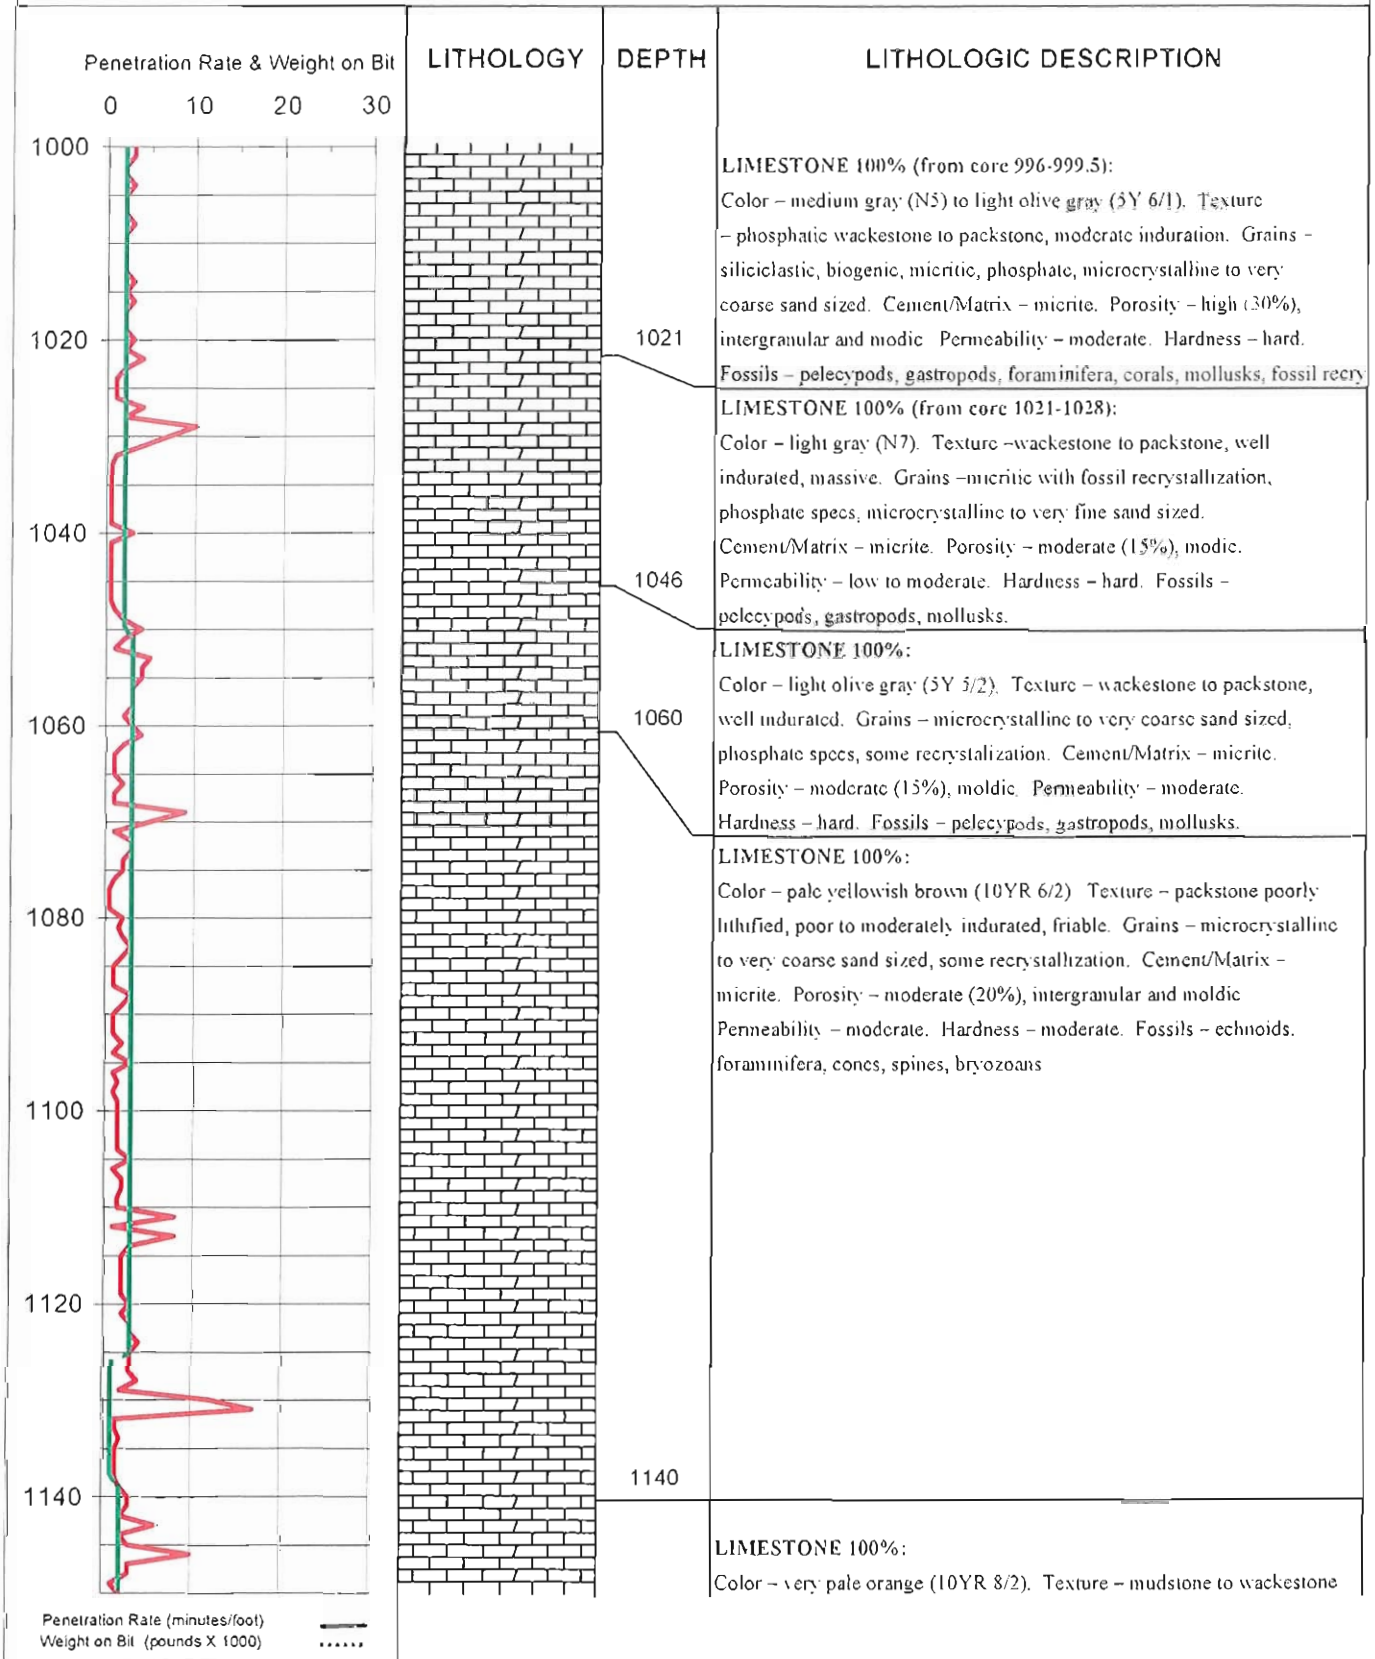 Penetration Rate & Weight on Bit
LITHOLOGY
DEPTH
LITHOLOGIC DESCRIPTION
0 10 20 30
1000
1020
1040
1060
1080
1100
1120
1140
1021
1046
1060
1140
LIMESTONE 100% (from core 996-999.5):
Color – medium gray (N5) to light olive gray (5Y 6/1). Texture
– phosphatic wackestone to packstone, moderate induration. Grains –
siliciclastic, biogenic, micritic, phosphate, microcrystalline to very
coarse sand sized. Cement/Matrix – micrite. Porosity – high (30%),
intergranular and modic Permeability – moderate. Hardness – hard.
Fossils – pelecypods, gastropods, foraminifera, corals, mollusks, fossil recry
LIMESTONE 100% (from core 1021-1028):
Color – light gray (N7). Texture –wackestone to packstone, well
indurated, massive. Grains –micritic with fossil recrystallization,
phosphate specs, microcrystalline to very fine sand sized.
Cement/Matrix – micrite. Porosity – moderate (15%), modic.
Permeability – low to moderate. Hardness – hard. Fossils –
pelecypods, gastropods, mollusks.
LIMESTONE 100%:
Color – light olive gray (5Y 5/2). Texture – wackestone to packstone,
well indurated. Grains – microcrystalline to very coarse sand sized,
phosphate specs, some recrystalization. Cement/Matrix – micrite.
Porosity – moderate (15%), moldic. Permeability – moderate.
Hardness – hard. Fossils – pelecypods, gastropods, mollusks.
LIMESTONE 100%:
Color – pale yellowish brown (10YR 6/2) Texture – packstone poorly
lithified, poor to moderately indurated, friable. Grains – microcrystalline
to very coarse sand sized, some recrystallization. Cement/Matrix –
micrite. Porosity – moderate (20%), intergranular and moldic
Permeability – moderate. Hardness – moderate. Fossils – echnoids.
foraminifera, cones, spines, bryozoans
LIMESTONE 100%:
Color – very pale orange (10YR 8/2). Texture – mudstone to wackestone
Penetration Rate (minutes/foot)
Weight on Bit (pounds X 1000)